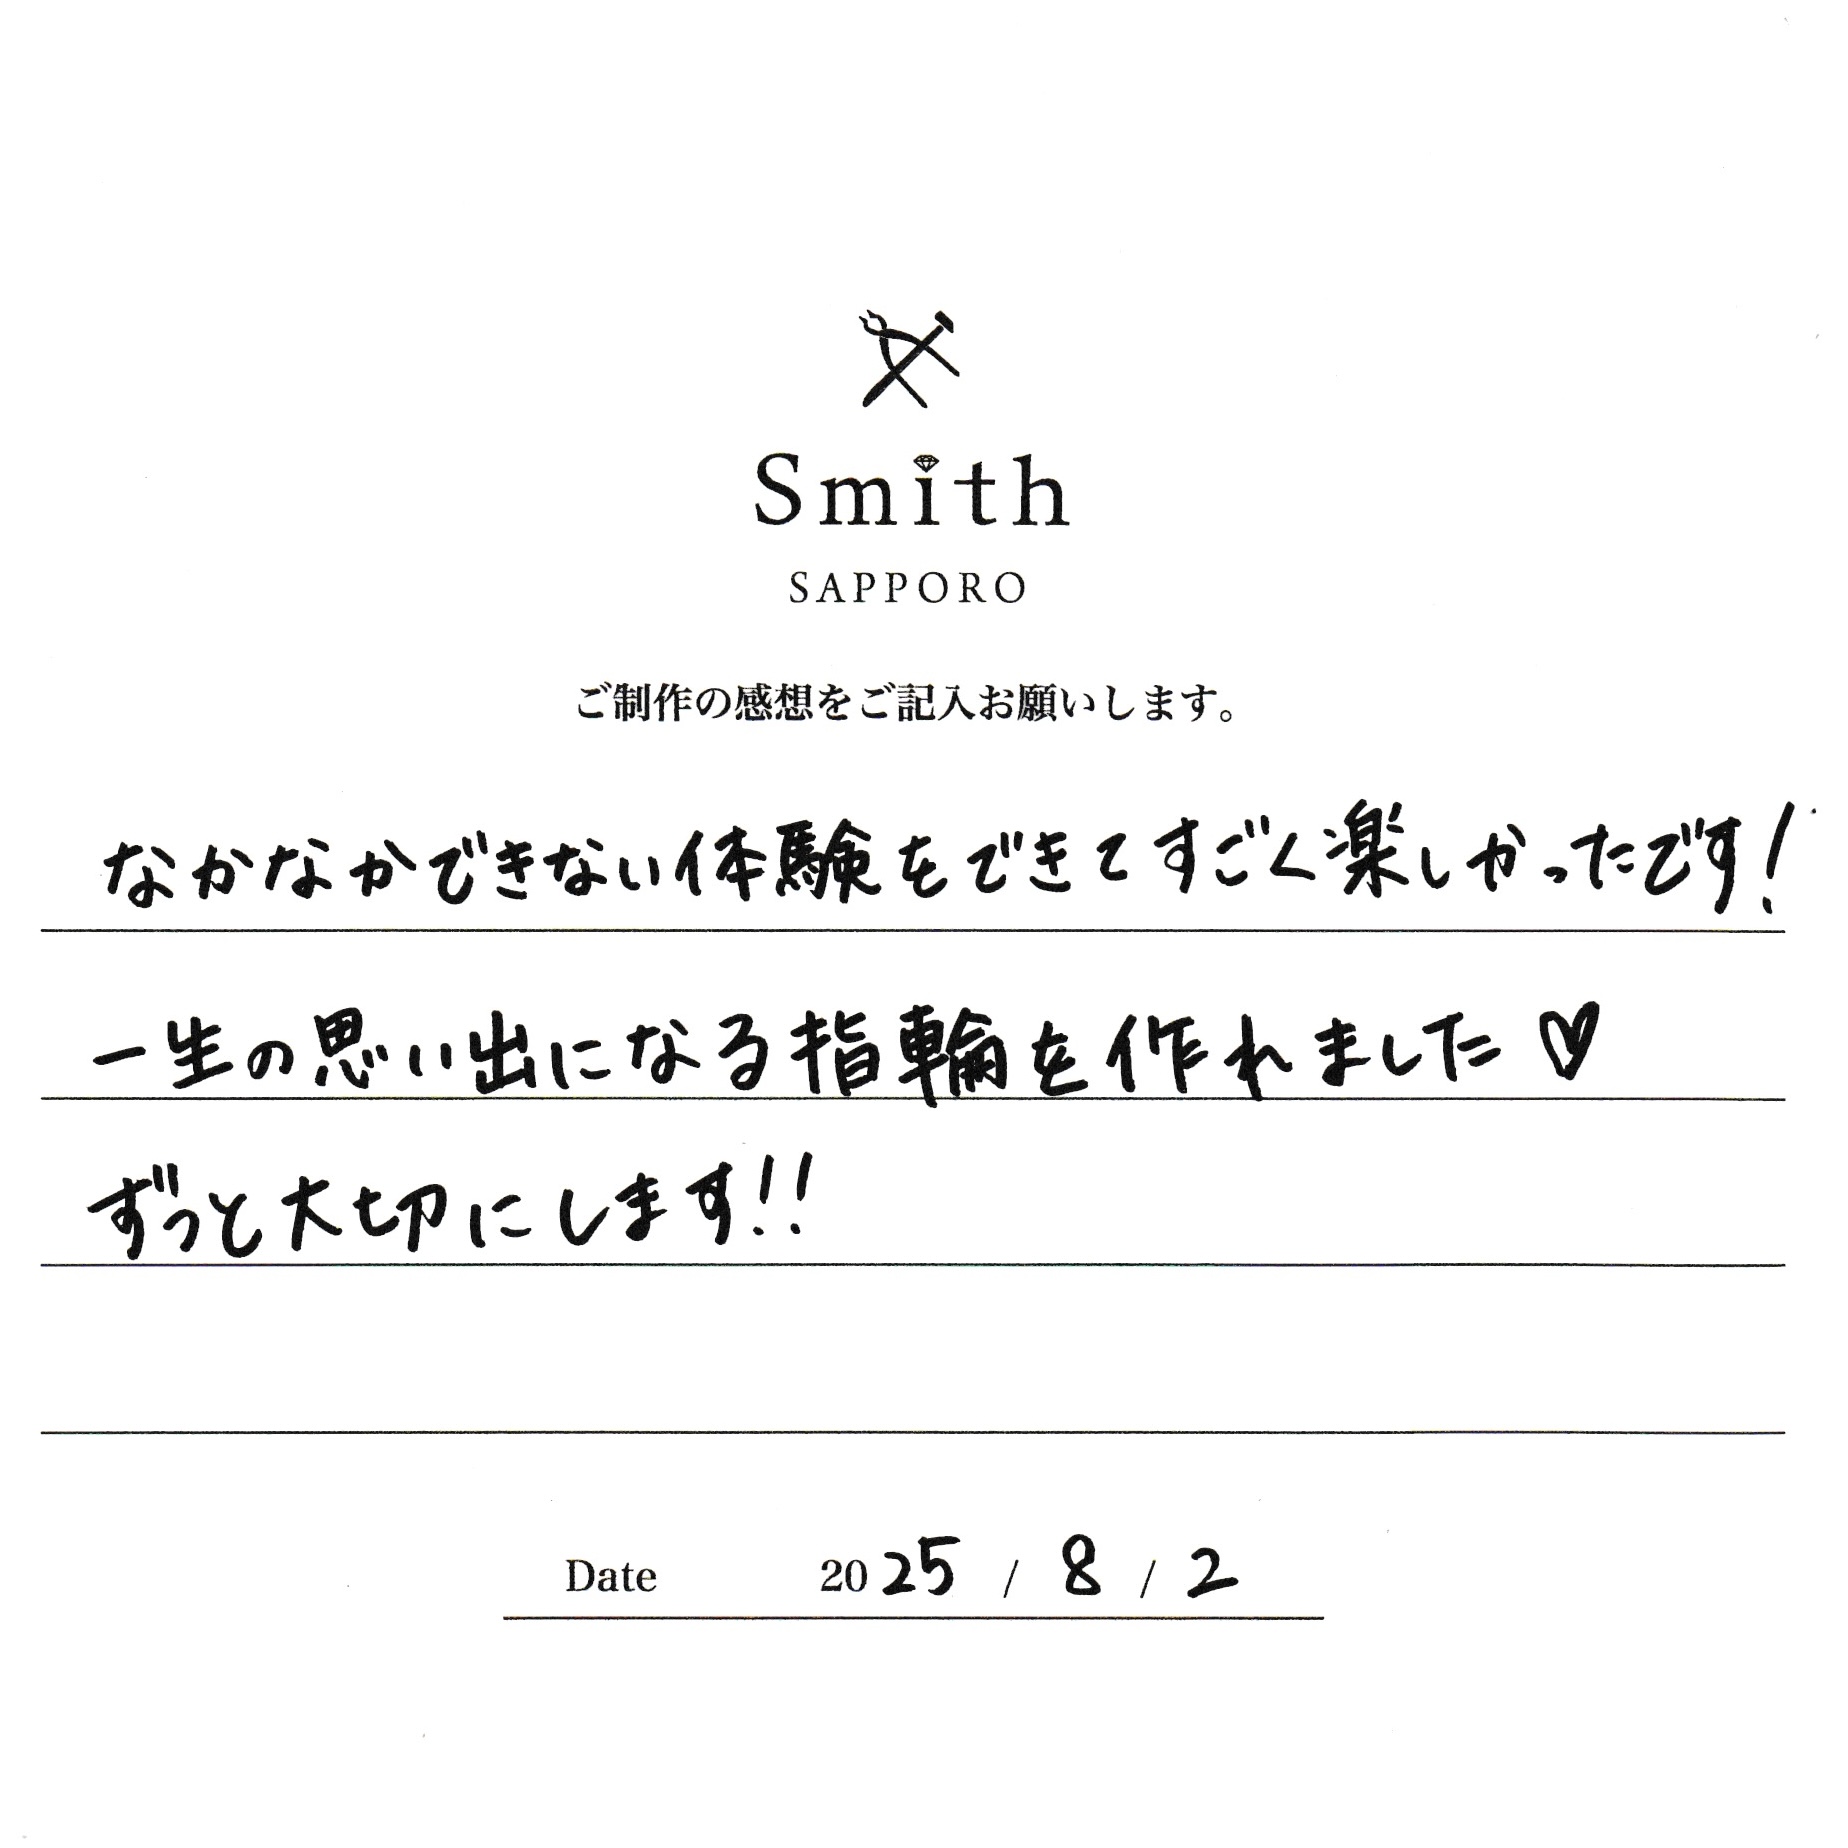 Smith
SAPPORO
ご制作の感想をご記入お願いします。
なかなかできない体験をできてすごく楽しかったです!
一生の思い出になる指輪を作れました♡
ずっと大切にします!!
Date 2025 / 8 / 2